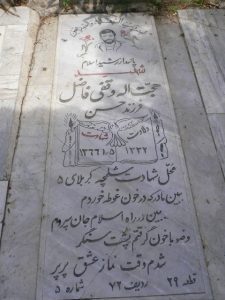 پاسدار رشید اسلام
شهید
حجت اله وقفی فاضل
فرزند حسن
ولادت شهادت
۱۳۴۲ ۱۳۶۶
محل شهادت شلمچه کربلای ۵
ببین مادر که در خون غوطه خوردم
ببین در راه اسلام جان سپردم
وضو با خون گرفتم پشت سنگر
شدم وقت نماز عشق پرپر
قطعه ۲۹ ردیف ۷۲ شماره ۵